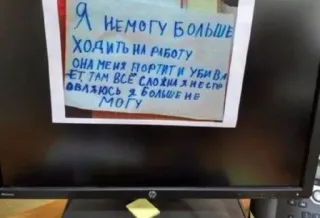 Я НЕМОГУ БОЛЬШЕ
ХОДИТЬ НА РАБОТУ
ОНА МЕНЯ ПОРТИТ И УБИВА
ЕТ ТАМ ВСЁ СЛОЖНА Я НЕСПР
ОВЛЯЮСЬ Я БОЛЬШЕ НЕ
МОГУ
hp